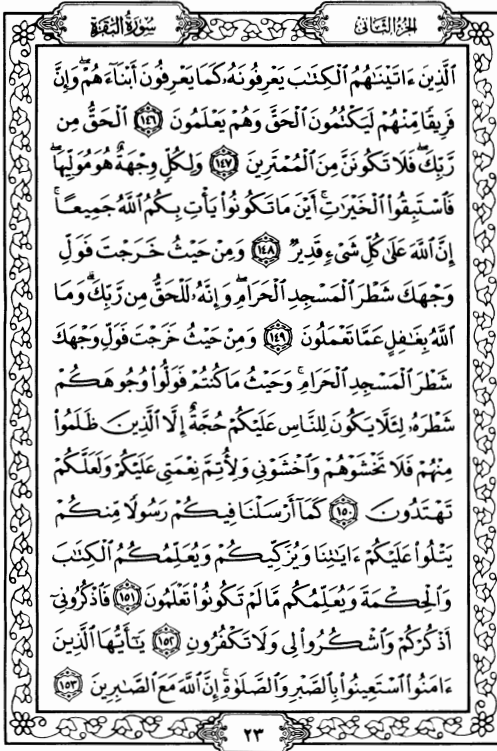 سُورَةُ البَقَرَةِ
الجُزْءُ الثَّانِي
ٱلَّذِينَ ءَاتَيْنَٰهُمُ ٱلْكِتَٰبَ يَعْرِفُونَهُۥ كَمَا يَعْرِفُونَ أَبْنَآءَهُمْۖ وَإِنَّ
فَرِيقًا مِّنْهُمْ لَيَكْتُمُونَ ٱلْحَقَّ وَهُمْ يَعْلَمُونَ ١٤٦ ٱلْحَقُّ مِن
رَّبِّكَۖ فَلَا تَكُونَنَّ مِنَ ٱلْمُمْتَرِينَ ١٤٧ وَلِكُلٍّ وِجْهَةٌ هُوَ مُوَلِّيهَاۖ
فَٱسْتَبِقُوا۟ ٱلْخَيْرَٰتِۚ أَيْنَ مَا تَكُونُوا۟ يَأْتِ بِكُمُ ٱللَّهُ جَمِيعًاۚ
إِنَّ ٱللَّهَ عَلَىٰ كُلِّ شَىْءٍ قَدِيرٌ ١٤٨ وَمِنْ حَيْثُ خَرَجْتَ فَوَلِّ
وَجْهَكَ شَطْرَ ٱلْمَسْجِدِ ٱلْحَرَامِۖ وَإِنَّهُۥ لَلْحَقُّ مِن رَّبِّكَۗ وَمَا
ٱللَّهُ بِغَٰفِلٍ عَمَّا تَعْمَلُونَ ١٤٩ وَمِنْ حَيْثُ خَرَجْتَ فَوَلِّ وَجْهَكَ
شَطْرَ ٱلْمَسْجِدِ ٱلْحَرَامِۚ وَحَيْثُ مَا كُنتُمْ فَوَلُّوا۟ وُجُوهَكُمْ
شَطْرَهُۥ لِئَلَّا يَكُونَ لِلنَّاسِ عَلَيْكُمْ حُجَّةٌ إِلَّا ٱلَّذِينَ ظَلَمُوا۟
مِنْهُمْ فَلَا تَخْشَوْهُمْ وَٱخْشَوْنِى وَلِأُتِمَّ نِعْمَتِى عَلَيْكُمْ وَلَعَلَّكُمْ
تَهْتَدُونَ ١٥٠ كَمَآ أَرْسَلْنَا فِيكُمْ رَسُولًا مِّنكُمْ
يَتْلُوا۟ عَلَيْكُمْ ءَايَٰتِنَا وَيُزَكِّيكُمْ وَيُعَلِّمُكُمُ ٱلْكِتَٰبَ
وَٱلْحِكْمَةَ وَيُعَلِّمُكُم مَّا لَمْ تَكُونُوا۟ تَعْلَمُونَ ١٥١ فَٱذْكُرُونِىٓ
أَذْكُرْكُمْ وَٱشْكُرُوا۟ لِى وَلَا تَكْفُرُونِ ١٥٢ يَٰٓأَيُّهَا ٱلَّذِينَ
ءَامَنُوا۟ ٱسْتَعِينُوا۟ بِٱلصَّبْرِ وَٱلصَّلَوٰةِۚ إِنَّ ٱللَّهَ مَعَ ٱلصَّٰبِرِينَ ١٥٣
٢٣